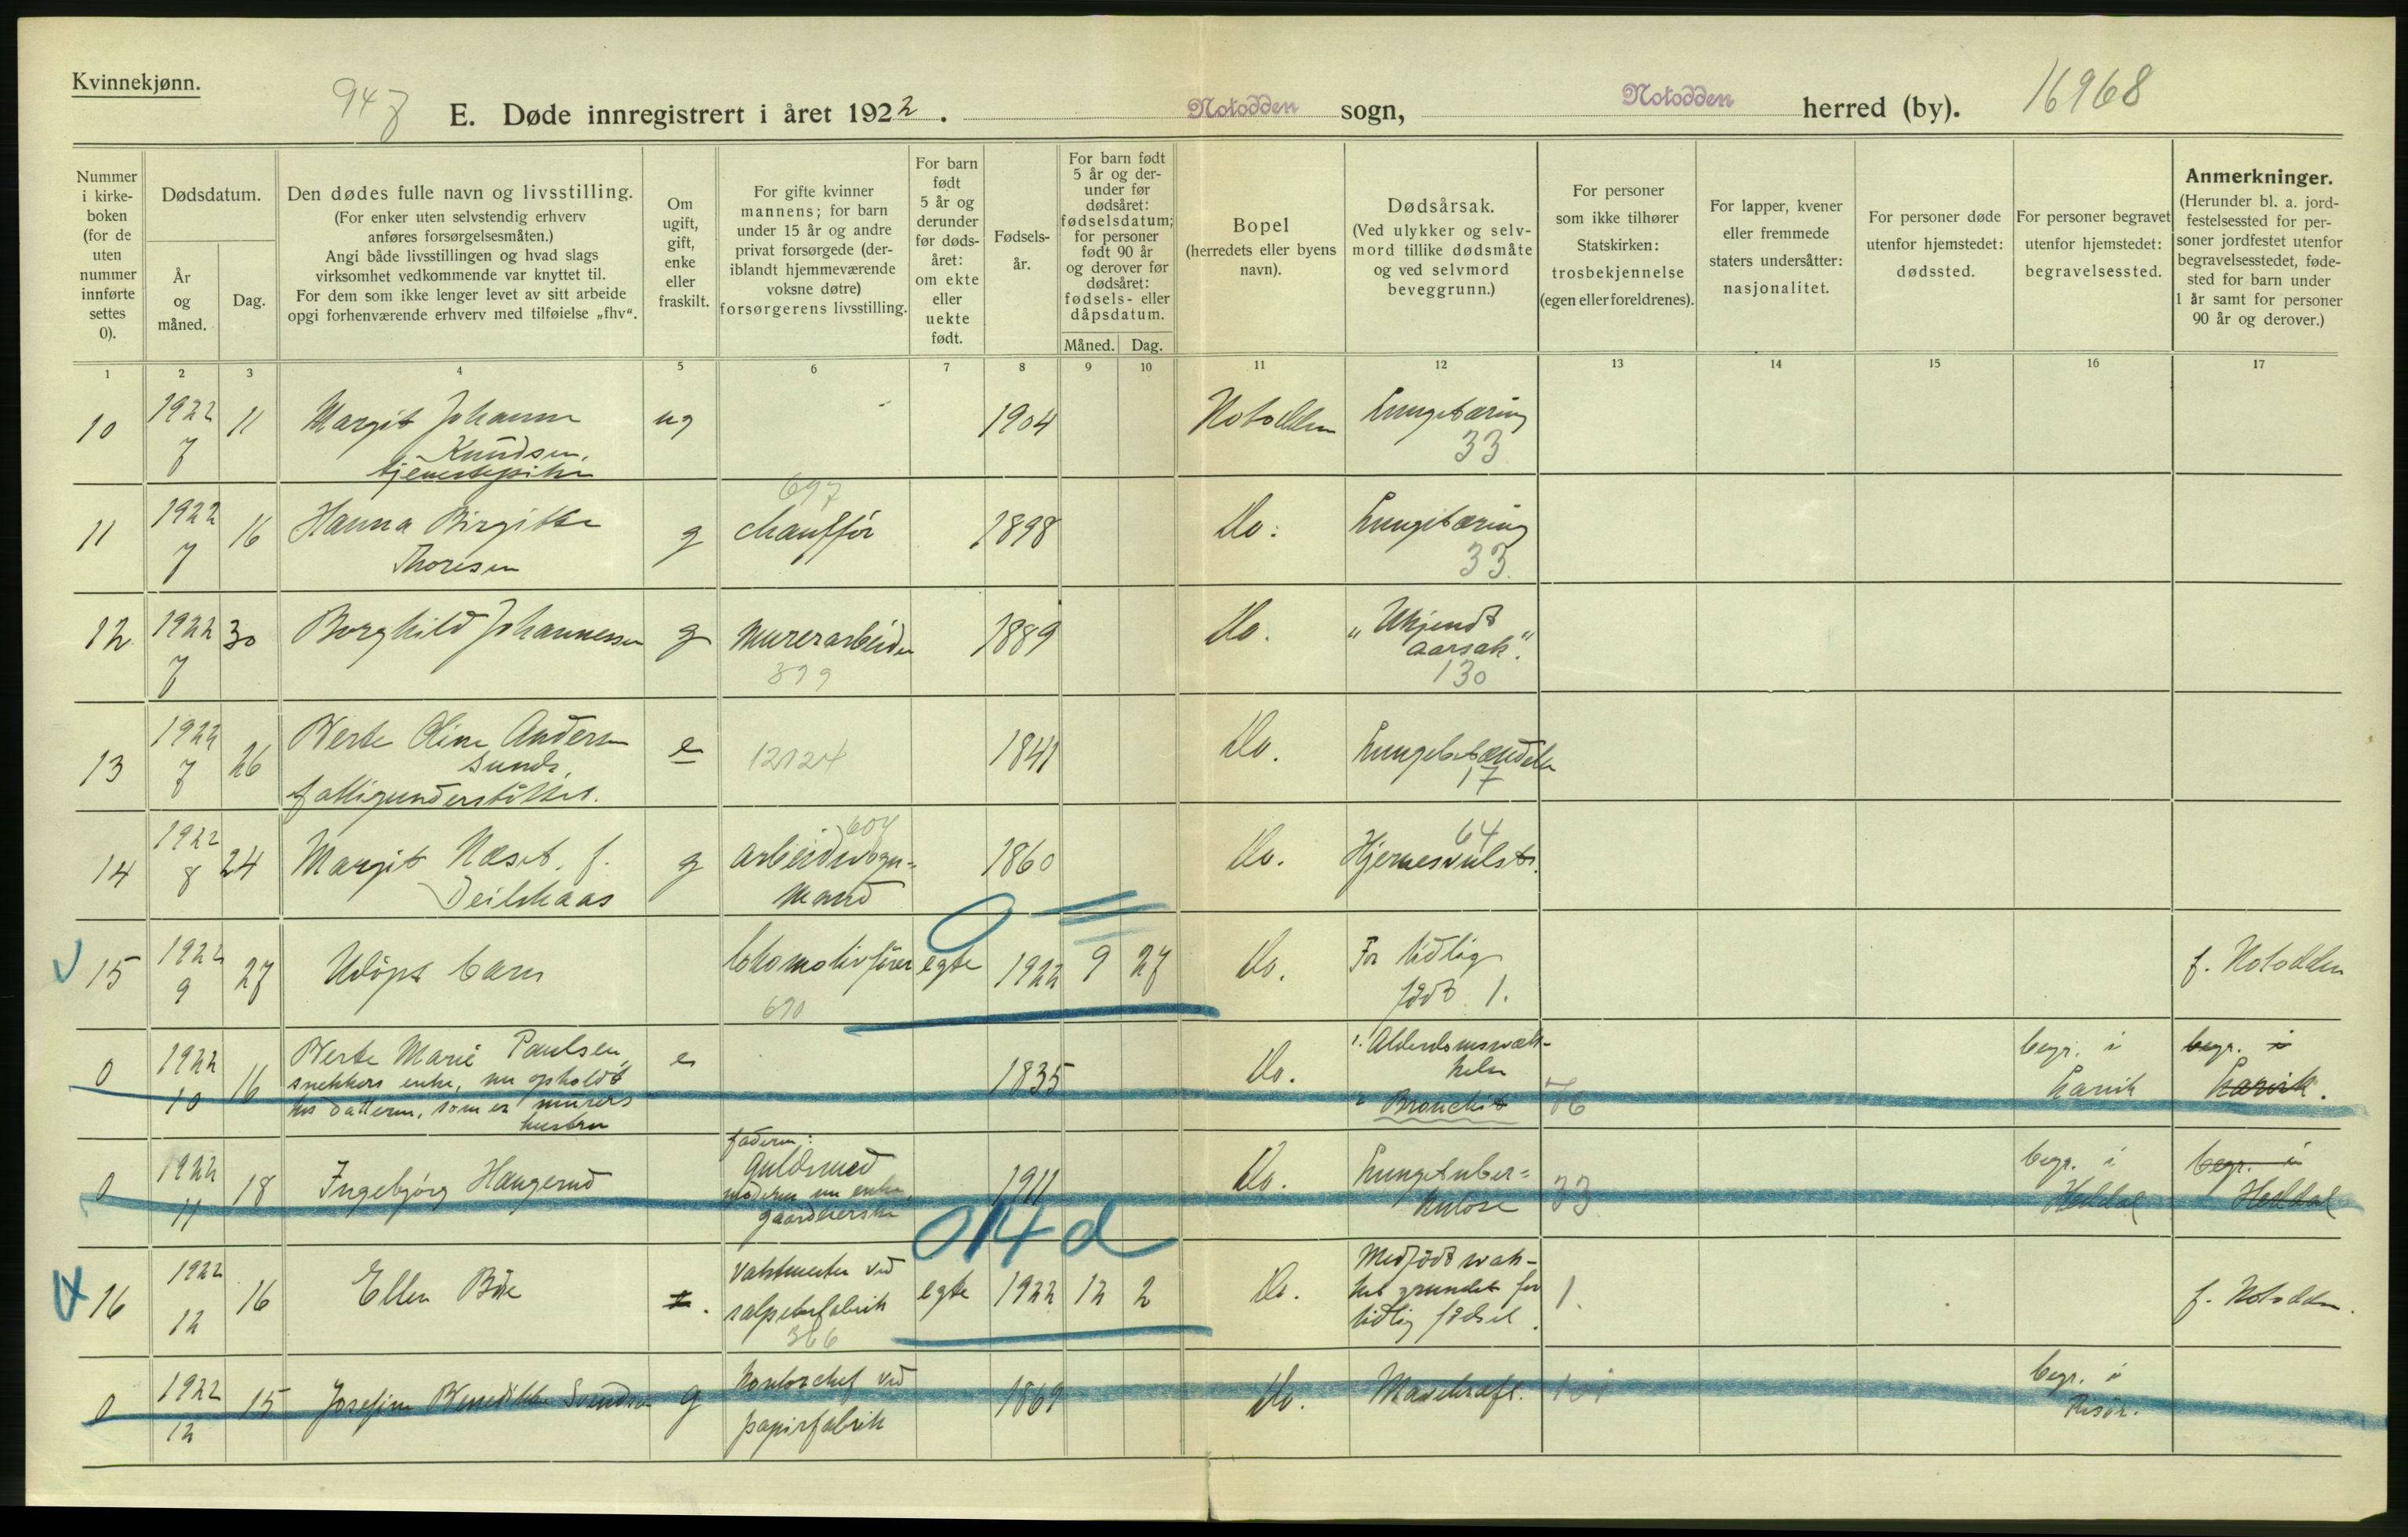 Kvinnekjønn.
947
E. Døde innregistrert i året 1922. Notodden sogn, Notodden herred (by). 16968
Nummer i kirkeboken (for de uten nummer innførte settes 0).
Dødsdatum.
År og måned.
Dag.
Den dødes fulle navn og livsstilling.
(For enker uten selvstendig erhverv
anføres forsørgelsesmåten.)
Angi både livsstillingen og hvad slags
virksomhet vedkommende var knyttet til.
For dem som ikke lenger levet av sitt arbeide
opgi forhenværende erhverv med tilføielse „fhv“.
Om
ugift,
gift,
enke
eller
fraskilt.
For gifte kvinner
mannens; for barn
under 15 år og andre
privat forsørgede (der-
iblandt hjemmeværende
voksne døtre)
forsørgerens livsstilling.
For barn
født
5 år og
derunder
før døds-
året:
om ekte
eller
uekte
født.
Fødsels-
år.
For barn født
5 år og der-
under før
dødsåret:
fødselsdatum;
for personer
født 90 år
og derover før
dødsåret:
fødsels- eller
dåpsdatum.
Måned. Dag.
Bopel
(herredets eller byens
navn).
Dødsårsak.
(Ved ulykker og selv-
mord tillike dødsmåte
og ved selvmord
beveggrunn.)
For personer
som ikke tilhører
Statskirken:
trosbekjennelse
(egen eller foreldrenes).
For lapper, kvener
eller fremmede
staters undersåtter:
nasjonalitet.
For personer døde
utenfor hjemstedet:
dødssted.
For personer begravet
utenfor hjemstedet:
begravelsessted.
Anmerkninger.
(Herunder bl. a. jord-
festelsessted for per-
soner jordfestet utenfor
begravelsesstedet, føde-
sted for barn under
1 år samt for personer
90 år og derover.)
1 2 3 4 5 6 7 8 9 10 11 12 13 14 15 16 17
10 1922 7 11 Margit Johanne ug 1904 Notodden Lungetæring
Knudsen, 33
tjenestepike
697
11 1922 7 16 Hanna Birgitte g chauffør 1898 Do. Lungetæring
Thoresen 33
12 1922 7 30 Borghild Johannessen g Murerarbeider 1889 Do. „Ukjendt
aarsak“.
130
13 1922 7 26 Berte Oline Anders e 12124 1841 Do. Lungebetændelse
sunds, 17
fattigunderstøttet.
604 64
14 1922 8 24 Margit Næset, f. g arbeidsvogn- 1860 Do. Hjernesvulst.
mand
15 1922 9 27 Udøpt barn lokomotivfører egte 1922 9 27 Do. For tidlig f. Notodden
670 født 1.
0 1922 10 16 Berte Marie Paulsen, e 1835 Do. 1. Alderdomssvak- begr. i begr. i
snekkers enke, nu opholdt helse Larvik Larvik.
hos datteren, som er murers 2 Bronchit 76
hustru
faderen:
0 1922 11 18 Ingebjørg Haugerud guldsmed 1911 Do. Lungetuber- 33 begr. i begr. i
moderen nu enke, kulose Heddal Heddal
gaardeierske
014d
16 1922 12 16 Ellen Bøe vaktmester ved egte 1922 12 2 Do. Medfødt svak- 1. f. Notodden.
salpeterfabrik het grundet for
366 tidlig fødsel.
0 1922 12 15 Josefine Benedikte Svendsen g kontorchef ved 1869 Do. Mavekræft. begr. i
papirfabrik Risør.